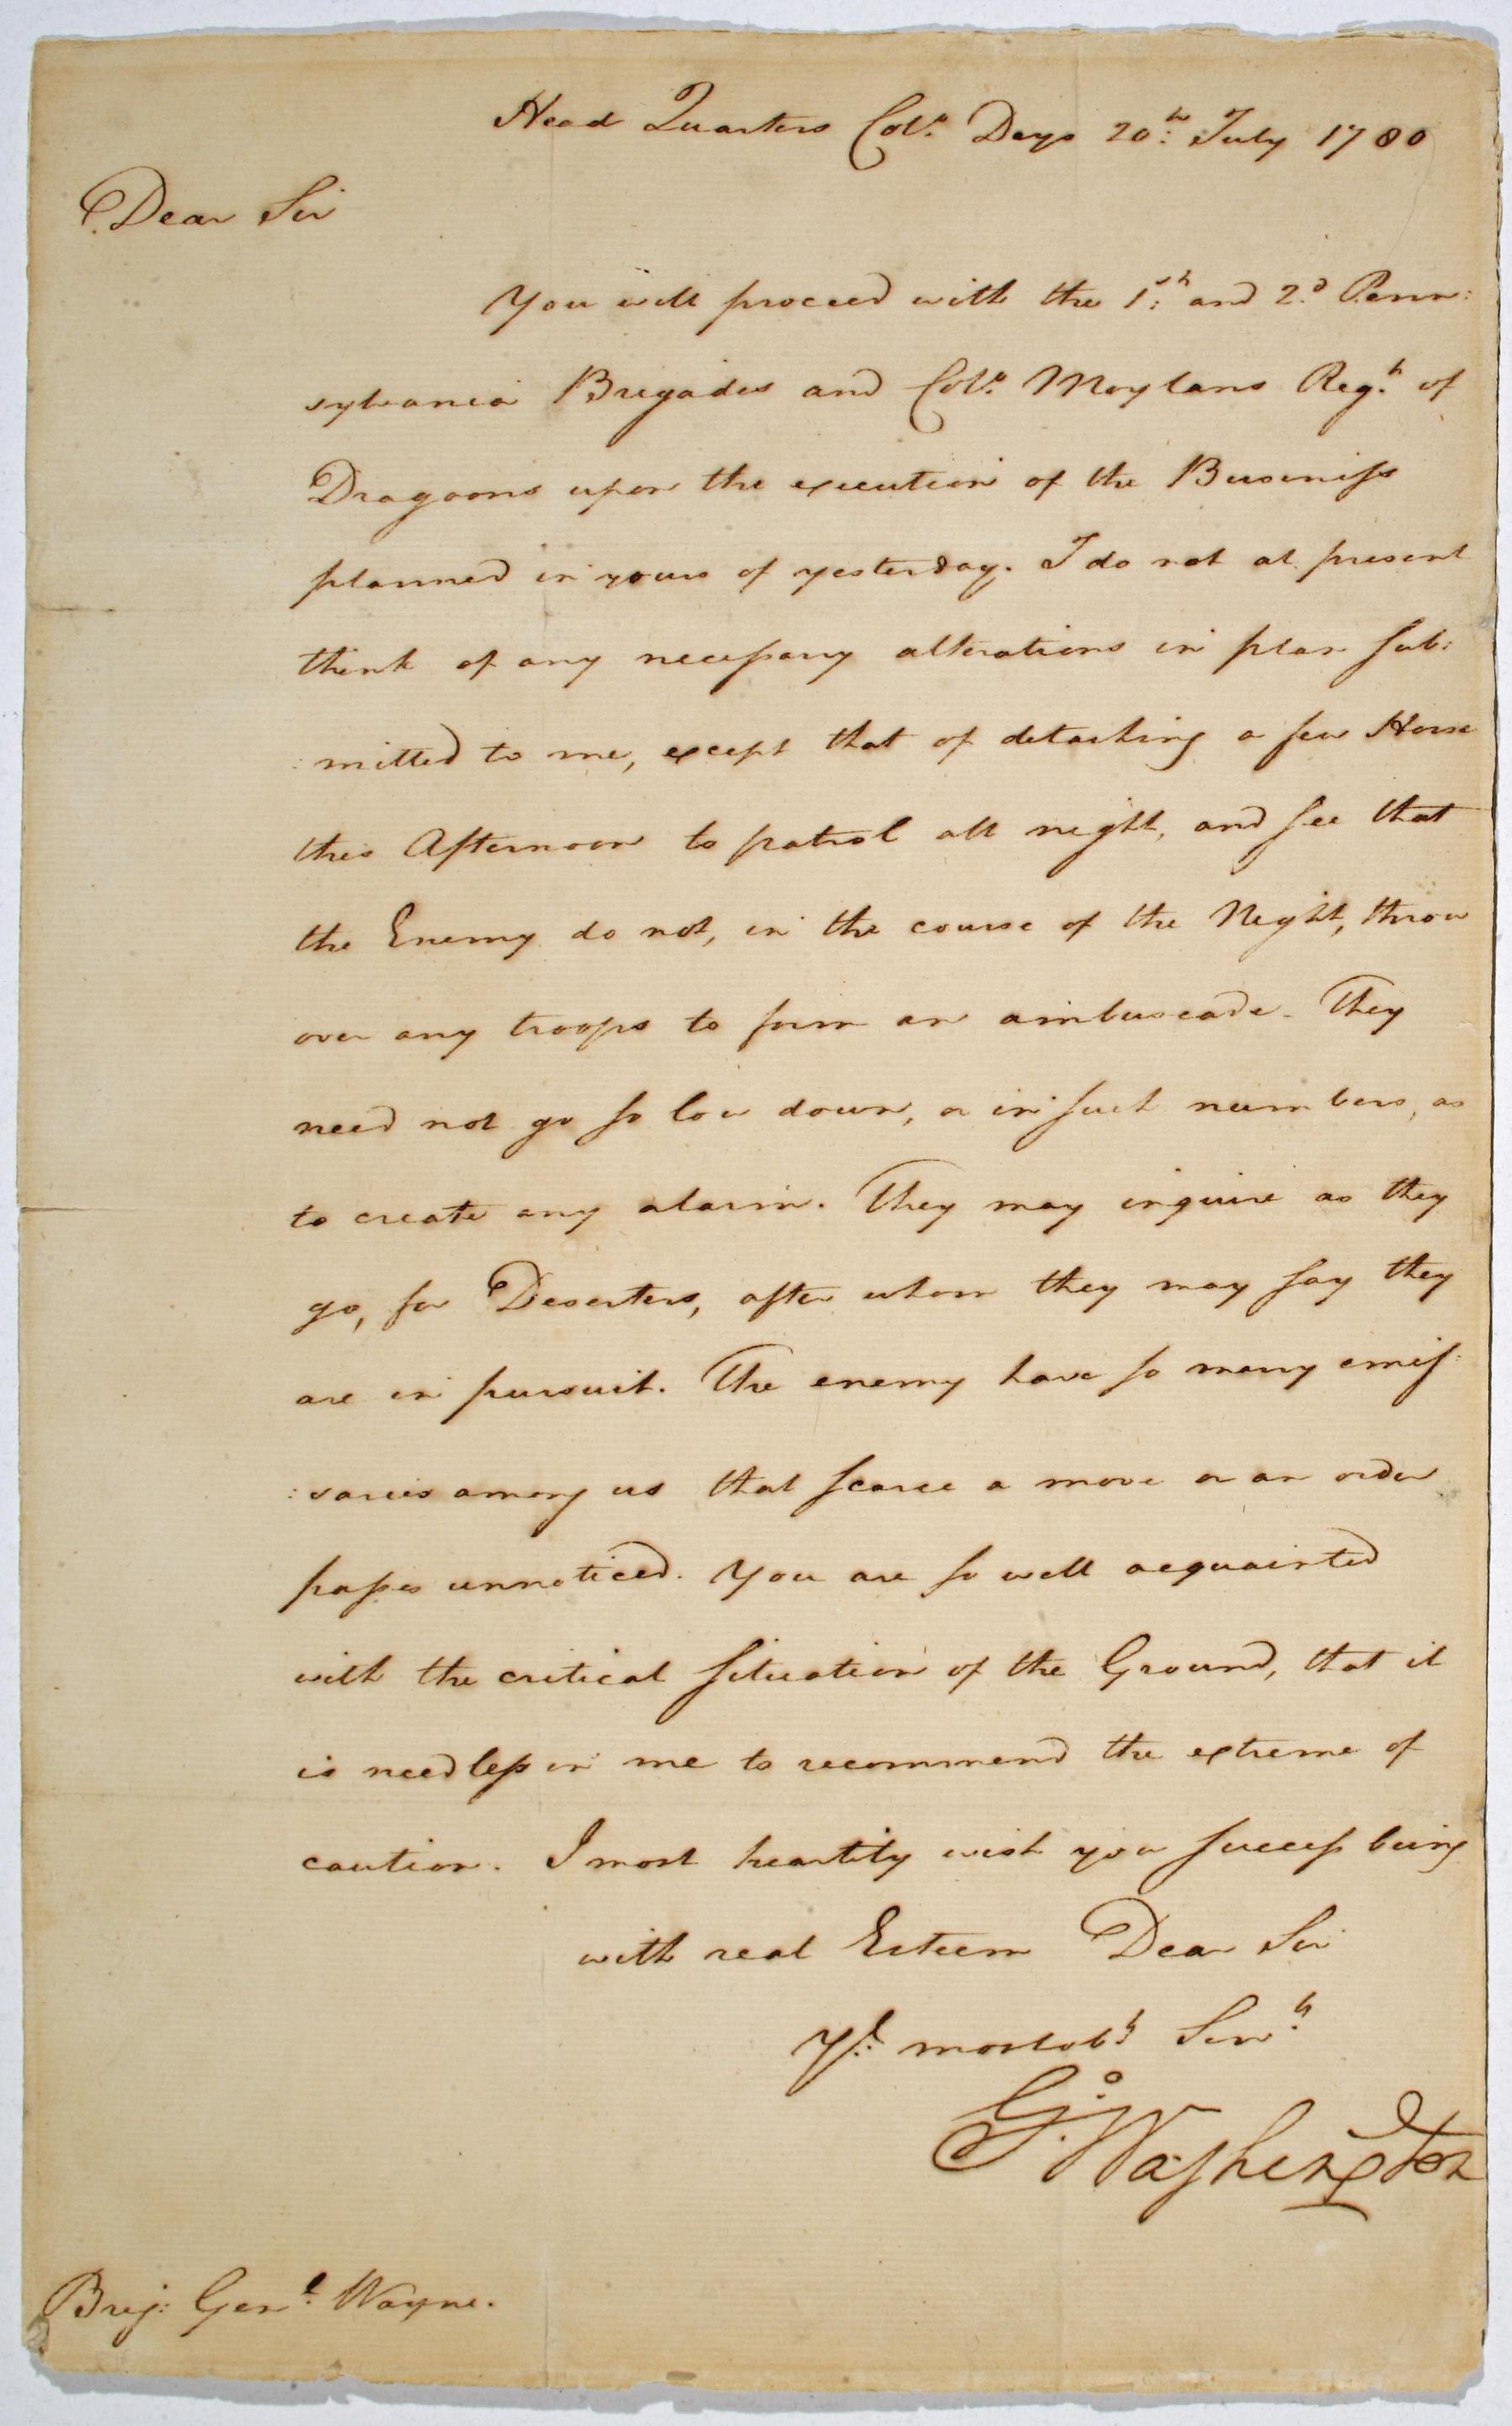 Head Quarters Colo. Deys 20th: July 1780
Dear Sir
You will proceed with the 1st: and 2d. Penn:
sylvania Brigades and Colo. Moylans Regt. of
Dragoons upon the execution of the Business
planned in yours of yesterday. I do not at present
think of any necessary alterations in plan sub:
:mitted to me, except that of detaching a few Horse
this Afternoon to patrol all night, and see that
the Enemy do not, in the course of the Night, throw
over any troops to form an ambuscade. They
need not go so low down, or in such numbers, as
to create any alarm. They may inquire as they
go, for Deserters, after whom they may say they
are in pursuit. The enemy have so many emis:
:saries among us that scarce a move or an order
passes unnoticed. You are so well acquainted
with the critical situation of the Ground, that it
is needless in me to recommend the extreme of
caution. I most heartily wish you success being
with real Esteem Dear Sir
Yr: most obt Servt.
Go: Washington
Brig: Genl. Wayne.